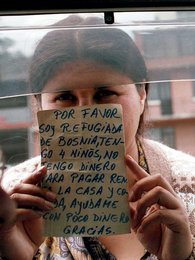 POR FAVOR
SOY REFUGIADA
DE BOSNIA, TEN-
GO 4 NIÑOS, NO
TENGO DINERO
PARA PAGAR REN-
LA CASA Y CO
DA, AYUDAME
CON POCO DINERO
GRACIAS.